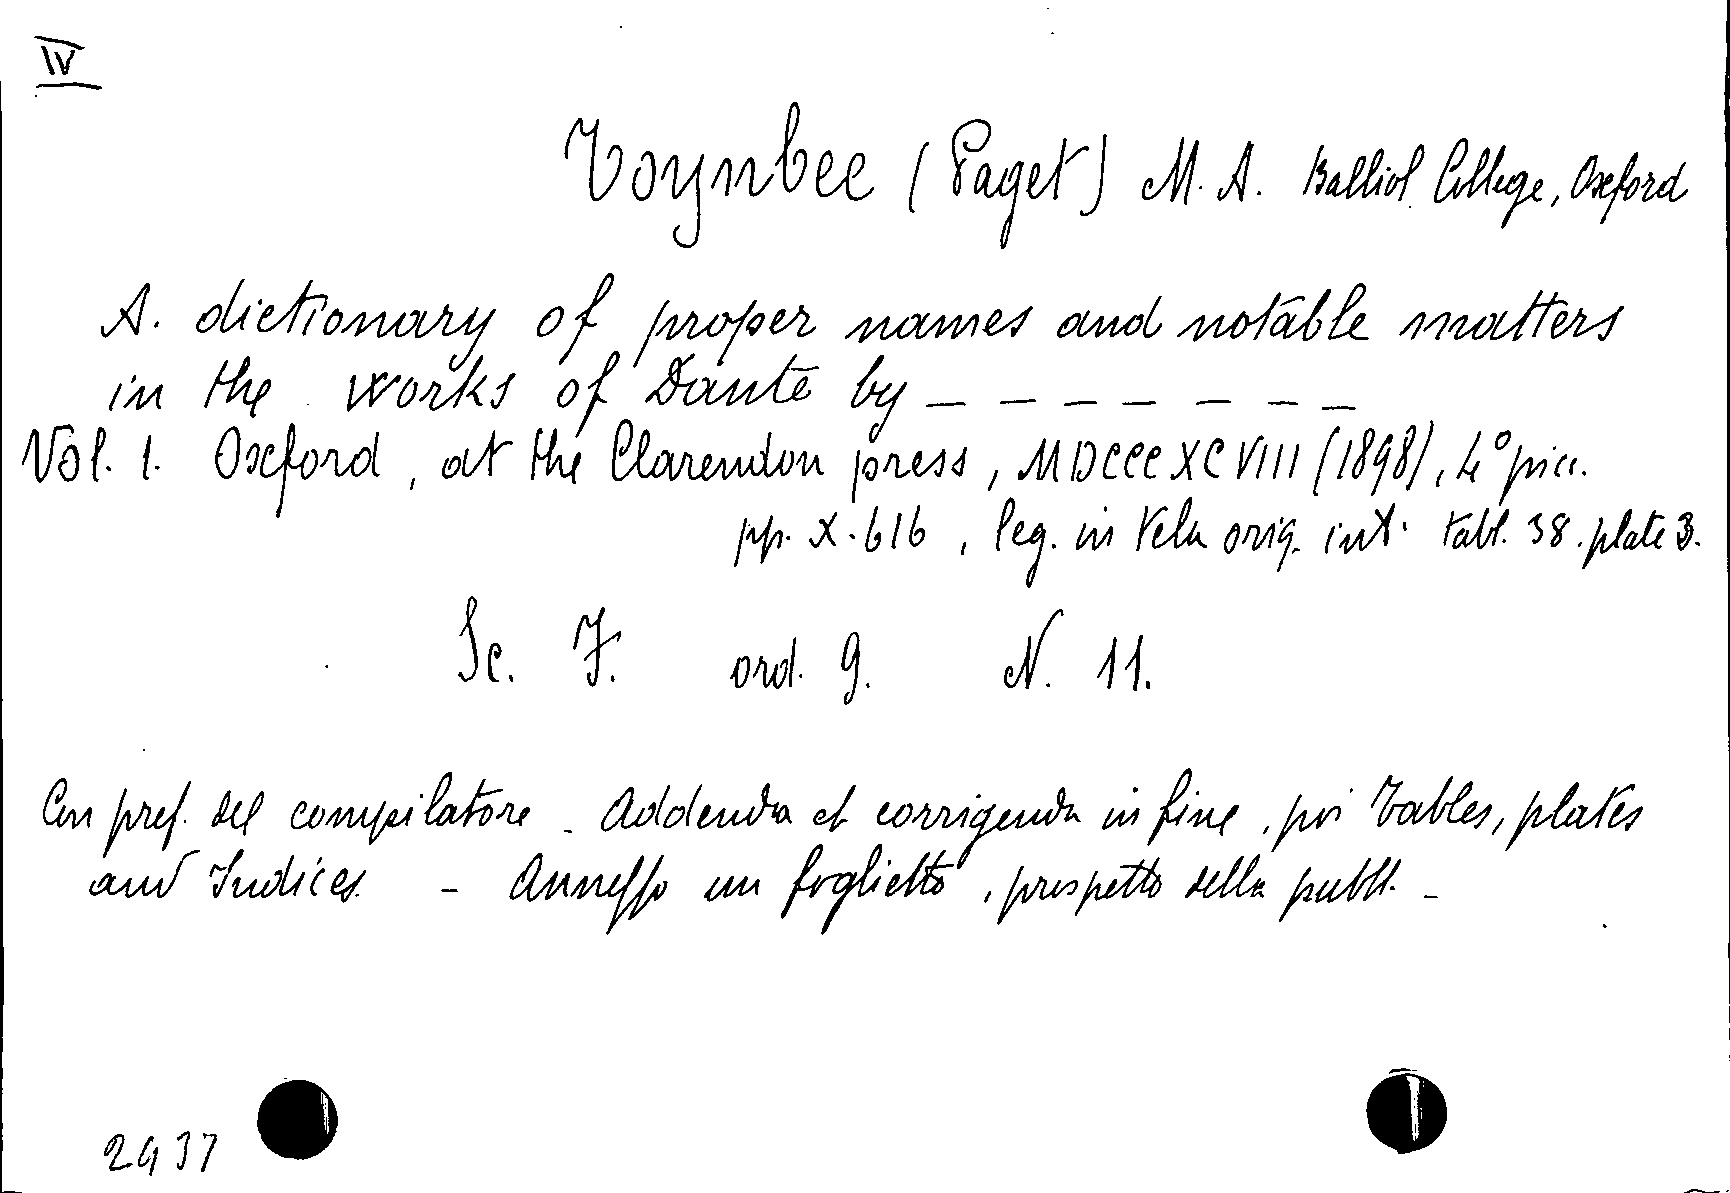 IV
Toynbee (Paget) M. A. Balliol College, Oxford
A. dictionary of proper names and notable matters
in the works of Dante by _ _ _ _ _ _ _
Vol. 1. Oxford, at the Clarendon press, MDCCCXCVIII (1898), 4° picc.
pp. X.616, leg. in tela orig. int. tabl. 38. plate 3.
Sc. F. ord. 9. N. 11.
Con pref. del compilatore - Addenda et corrigenda in fine, poi Tables, plates
and Indices. - Annesso un foglietto, prospetto della pubbl. -
2437